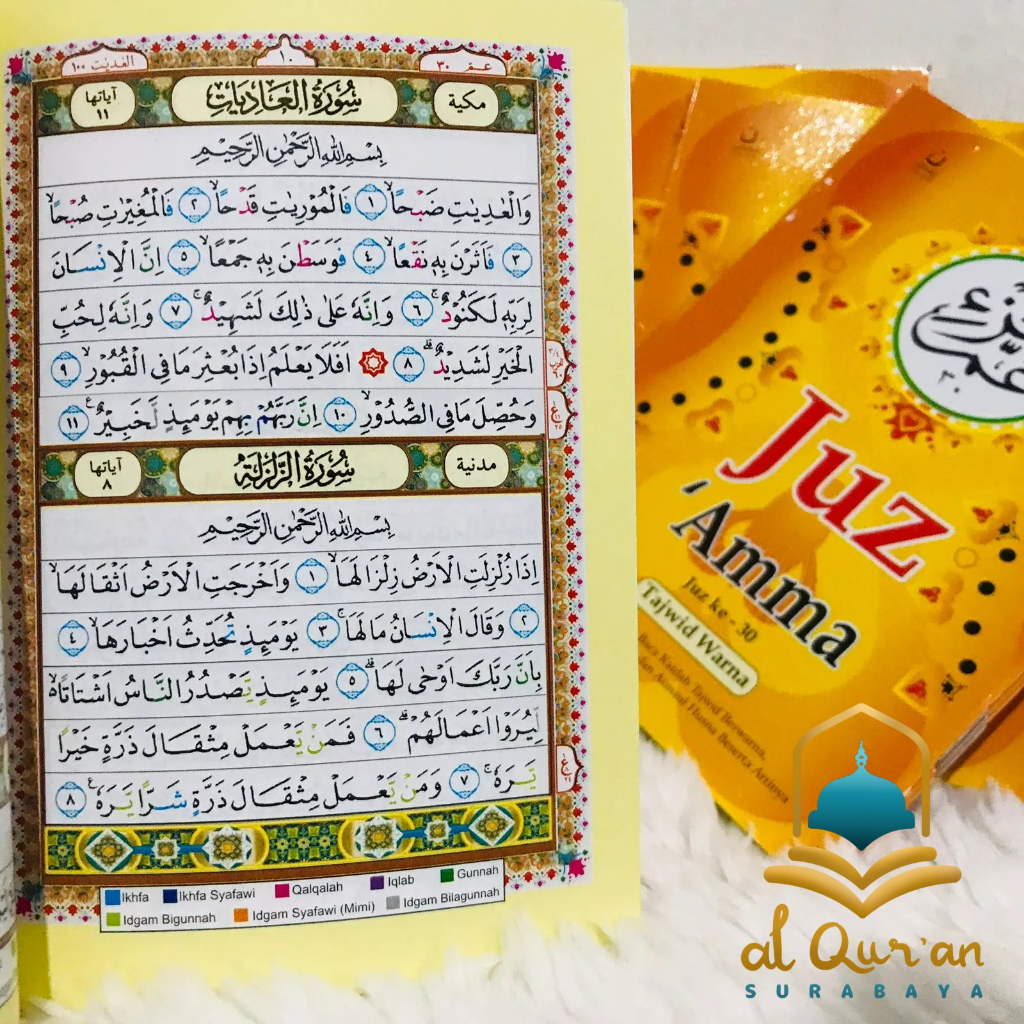 العديت ١٠٠
١٠
عم ٣٠
مكية
سُورَةُ الْعَادِيَاتِ
آياتها ١١
بِسْمِ اللهِ الرَّحْمٰنِ الرَّحِيْمِ
وَالْعٰدِيٰتِ ضَبْحًاۙ ١ فَالْمُوْرِيٰتِ قَدْحًاۙ ٢ فَالْمُغِيْرٰتِ صُبْحًاۙ
٣ فَاَثَرْنَ بِهٖ نَقْعًاۙ ٤ فَوَسَطْنَ بِهٖ جَمْعًاۙ ٥ اِنَّ الْاِنْسَانَ
لِرَبِّهٖ لَكَنُوْدٌۚ ٦ وَاِنَّهٗ عَلٰى ذٰلِكَ لَشَهِيْدٌۚ ٧ وَاِنَّهٗ لِحُبِّ
الْخَيْرِ لَشَدِيْدٌۗ ٨ ۞ اَفَلَا يَعْلَمُ اِذَا بُعْثِرَ مَا فِى الْقُبُوْرِۙ ٩
وَحُصِّلَ مَا فِى الصُّدُوْرِۙ ١٠ اِنَّ رَبَّهُمْ بِهِمْ يَوْمَىِٕذٍ لَّخَبِيْرٌ ࣖ ١١
مدنية
سُورَةُ الزَّلْزَلَةِ
آياتها ٨
بِسْمِ اللهِ الرَّحْمٰنِ الرَّحِيْمِ
اِذَا زُلْزِلَتِ الْاَرْضُ زِلْزَالَهَاۙ ١ وَاَخْرَجَتِ الْاَرْضُ اَثْقَالَهَاۙ
٢ وَقَالَ الْاِنْسَانُ مَا لَهَاۚ ٣ يَوْمَىِٕذٍ تُحَدِّثُ اَخْبَارَهَاۙ ٤
بِاَنَّ رَبَّكَ اَوْحٰى لَهَاۗ ٥ يَوْمَىِٕذٍ يَّصْدُرُ النَّاسُ اَشْتَاتًا ەۙ
لِّيُرَوْا اَعْمَالَهُمْۗ ٦ فَمَنْ يَّعْمَلْ مِثْقَالَ ذَرَّةٍ خَيْرًا
يَّرَهٗۚ ٧ وَمَنْ يَّعْمَلْ مِثْقَالَ ذَرَّةٍ شَرًّا يَّرَهٗ ࣖ ٨
Ikhfa Ikhfa Syafawi Qalqalah Iqlab Gunnah
Idgam Bigunnah Idgam Syafawi (Mimi) Idgam Bilagunnah
جزء
عم
Juz
'Amma
Juz ke - 30
Tajwid Warna
al Qur'an
SURABAYA